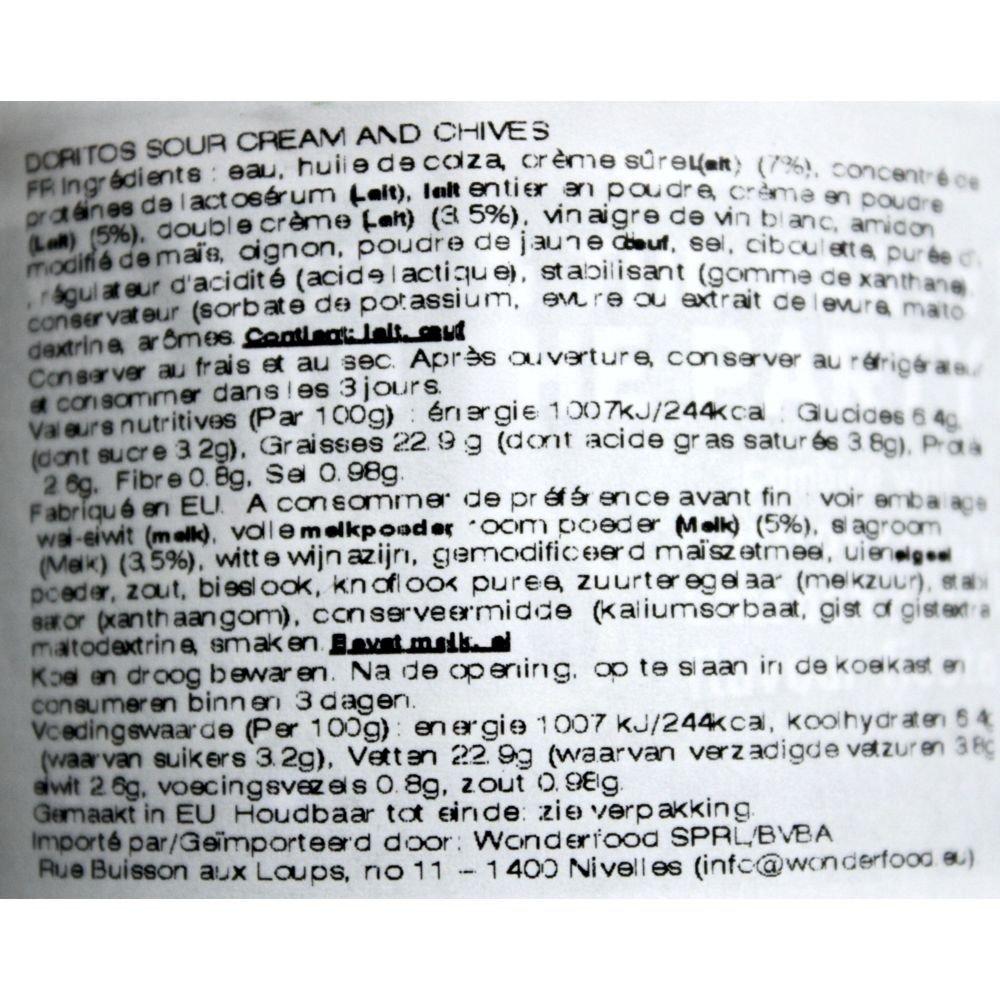 DORITOS SOUR CREAM AND CHIVES
FR Ingrédients : eau, huile de colza, crème sûre (Lait) (7%), concentré de
protéines de lactosérum (Lait), lait entier en poudre, crème en poudre
(Lait) (5%), double crème (Lait) (3.5%), vinaigre de vin blanc, amidon
modifié de maïs, oignon, poudre de jaune d'œuf, sel, ciboulette, purée d'
, régulateur d'acidité (acide lactique), stabilisant (gomme de xanthane),
conservateur (sorbate de potassium, evure ou extrait de levure, malto
dextrine, arômes. Contient: lait, œuf
Conserver au frais et au sec. Après ouverture, conserver au réfrigérateur
et consommer dans les 3 jours.
Valeurs nutritives (Par 100g) : énergie 1007kJ/244kcal : Glucides 6.4g,
(dont sucre 3.2g), Graisses 22.9 g (dont acide gras saturés 3.8g), Proté
2.6g, Fibre 0.8g, Sel 0.98g.
Fabriqué en EU. A consommer de préférence avant fin : voir embalage
wei-eiwit (melk), volle melkpoeder, room poeder (Melk) (5%), slagroom
(Melk) (3,5%), witte wijnazijn, gemodificeerd maïszetmeel, uien, eigeel
poeder, zout, bieslook, knoflook puree, zuurteregelaar (melkzuur), stabi
sator (xanthaangom), conserveermidde (kaliumsorbaat, gist of gistextra
maltodextrine, smaken. Bevat melk, ei
Koel en droog bewaren. Na de opening, op te slaan in de koelkast en
consumeren binnen 3 dagen.
Voedingswaarde (Per 100g) : energie 1007 kJ/244kcal, koolhydraten 6.4g
(waarvan suikers 3.2g), Vetten 22.9g (waarvan verzadigde vetzuren 3.8g
eiwit 2.6g, voedingsvezels 0.8g, zout 0.98g.
Gemaakt in EU Houdbaar tot einde: zie verpakking.
Importé par/Geïmporteerd door: Wonderfood SPRL/BVBA
Rue Buisson aux Loups, no 11 – 1400 Nivelles (info@wonderfood.eu)